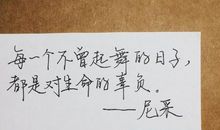 每一个不曾起舞的日子,
都是对生命的辜负。
——尼采